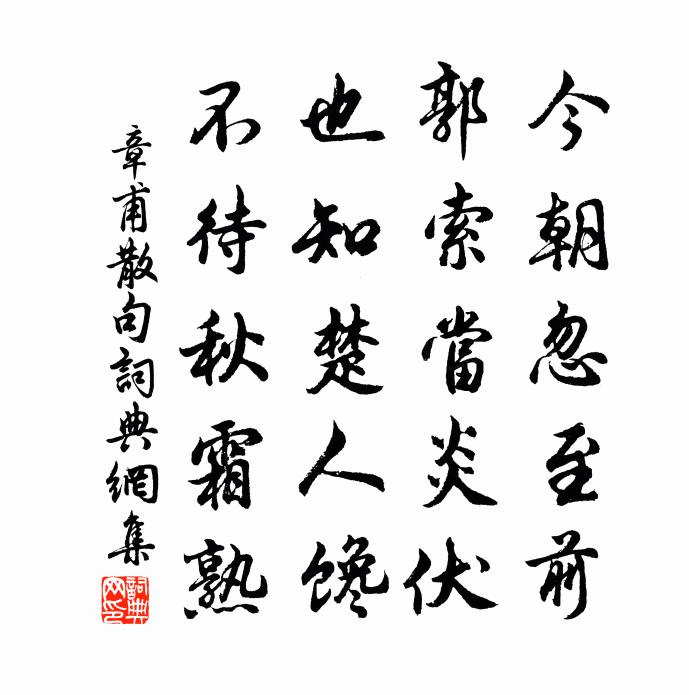 今朝忽至前
郭索當炎伏
也知楚人馋
不待秋霜熟
章甫散句詞典網集
詞典網印